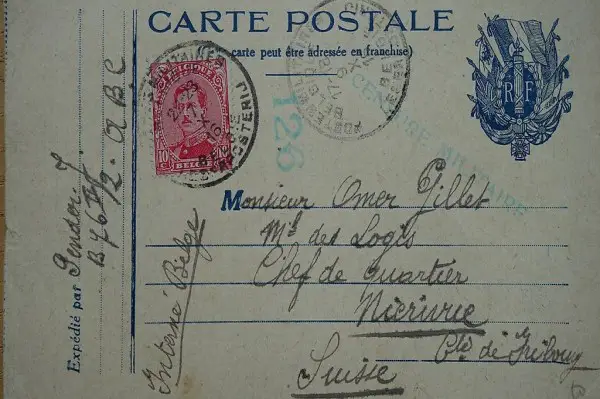 CARTE POSTALE
carte peut être adressée en franchise)
RF
BELGIQUE
10 C
BELGIE
126
CENSURE MILITAIRE
Monsieur Omer Gillet
Mˡ des Logis
Chef de quartier
Nierivue
Cᵗᵒⁿ de Fribourg
Suisse
Interné Belge
Expédié par Gender. J.
B 76 II/2. A B C